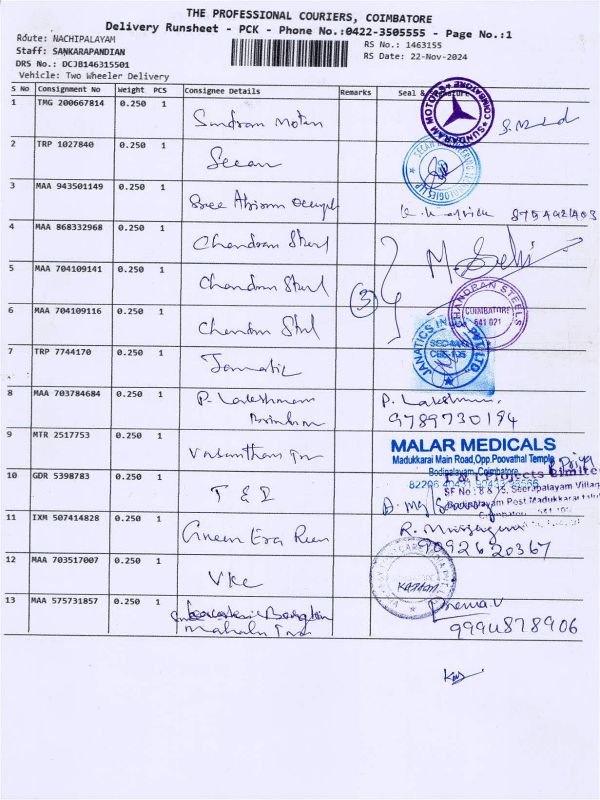 THE PROFESSIONAL COURIERS, COIMBATORE
Delivery Runsheet - PCK - Phone No.:0422-3505555 - Page No.:1
Route: NACHIPALAYAM
RS No.: 1463155
Staff: SANKARAPANDIAN
RS Date: 22-Nov-2024
DRS No.: DCJB146315501
Vehicle: Two Wheeler Delivery
S No Consignment No Weight PCS Consignee Details Remarks Seal &
1 TMG 200667814 0.250 1 Sundram Moters
SUNDARAM MOTORS COIMBATORE
2 TRP 1027840 0.250 1 Secan
SECAN
3 MAA 943501149 0.250 1 Sree
4 MAA 868332968 0.250 1 Chandran Steel
5 MAA 704109141 0.250 1 Chandran Steel
3
6 MAA 704109116 0.250 1 Chandran Steel
CHANDRAN STEELS COIMBATORE 641 021
7 TRP 7744170 0.250 1
JANATICS INDIA PVT LTD
8 MAA 703784684 0.250 1 P. Lakshmanan P. Lakshmi
9789730194
9 MTR 2517753 0.250 1
MALAR MEDICALS
Madukkarai Main Road,Opp.Poovathal Temple
Bodipalayam,Coimbatore
10 GDR 5398783 0.250 1 T & I
Projects Limited
SF No : 8 & 15, Seerapalayam Village
Post Madukkarai
11 IXM 507414828 0.250 1 Green Era R. Murugan
9092620367
12 MAA 703517007 0.250 1 VKC
13 MAA 575731857 0.250 1 Prema.V
9994878906